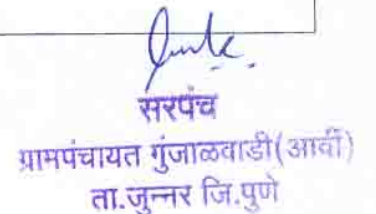 सरपंच
ग्रामपंचायत गुंजाळवाडी(आर्वी)
ता.जुन्नर जि.पुणे